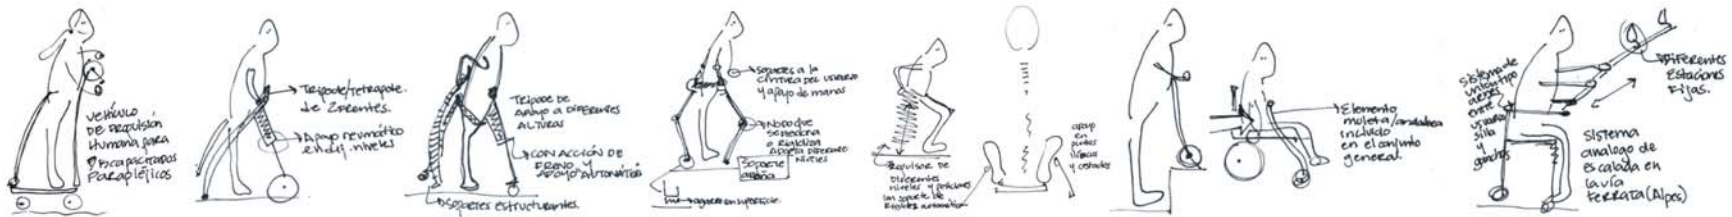 VEHÍCULO
DE PROPULSIÓN
HUMANA PARA
DISCAPACITADOS
PARAPLÉJICOS
Tripode/tetrapode
de 2 frentes.
Apoyo neumático
en dif. niveles
TRIPODE DE
APOYO A DIFERENTES
ALTURAS
CON ACCIÓN DE
FRENO Y
APOYO AUTOMÁTICO
Soportes estructurantes.
Soportes a la
cintura del usuario
y apoyo de manos
Nodo que
se
o rigidiza
diferente
niveles
Soporte
araña
agarre en superficie.
Propulsor de
Diferentes
niveles y posiciones
con soporte de
apoyo
en
puntos
y costados
Elemento
muleta/andadera
incluido
en el conjunto
general.
Sistema de
unión tipo
arnés
entre
usuario
silla
y
gancho
Diferentes
Estaciones
Fijas.
SISTEMA
analogo de
escalada en
la vía
FERRATA (Alpes)